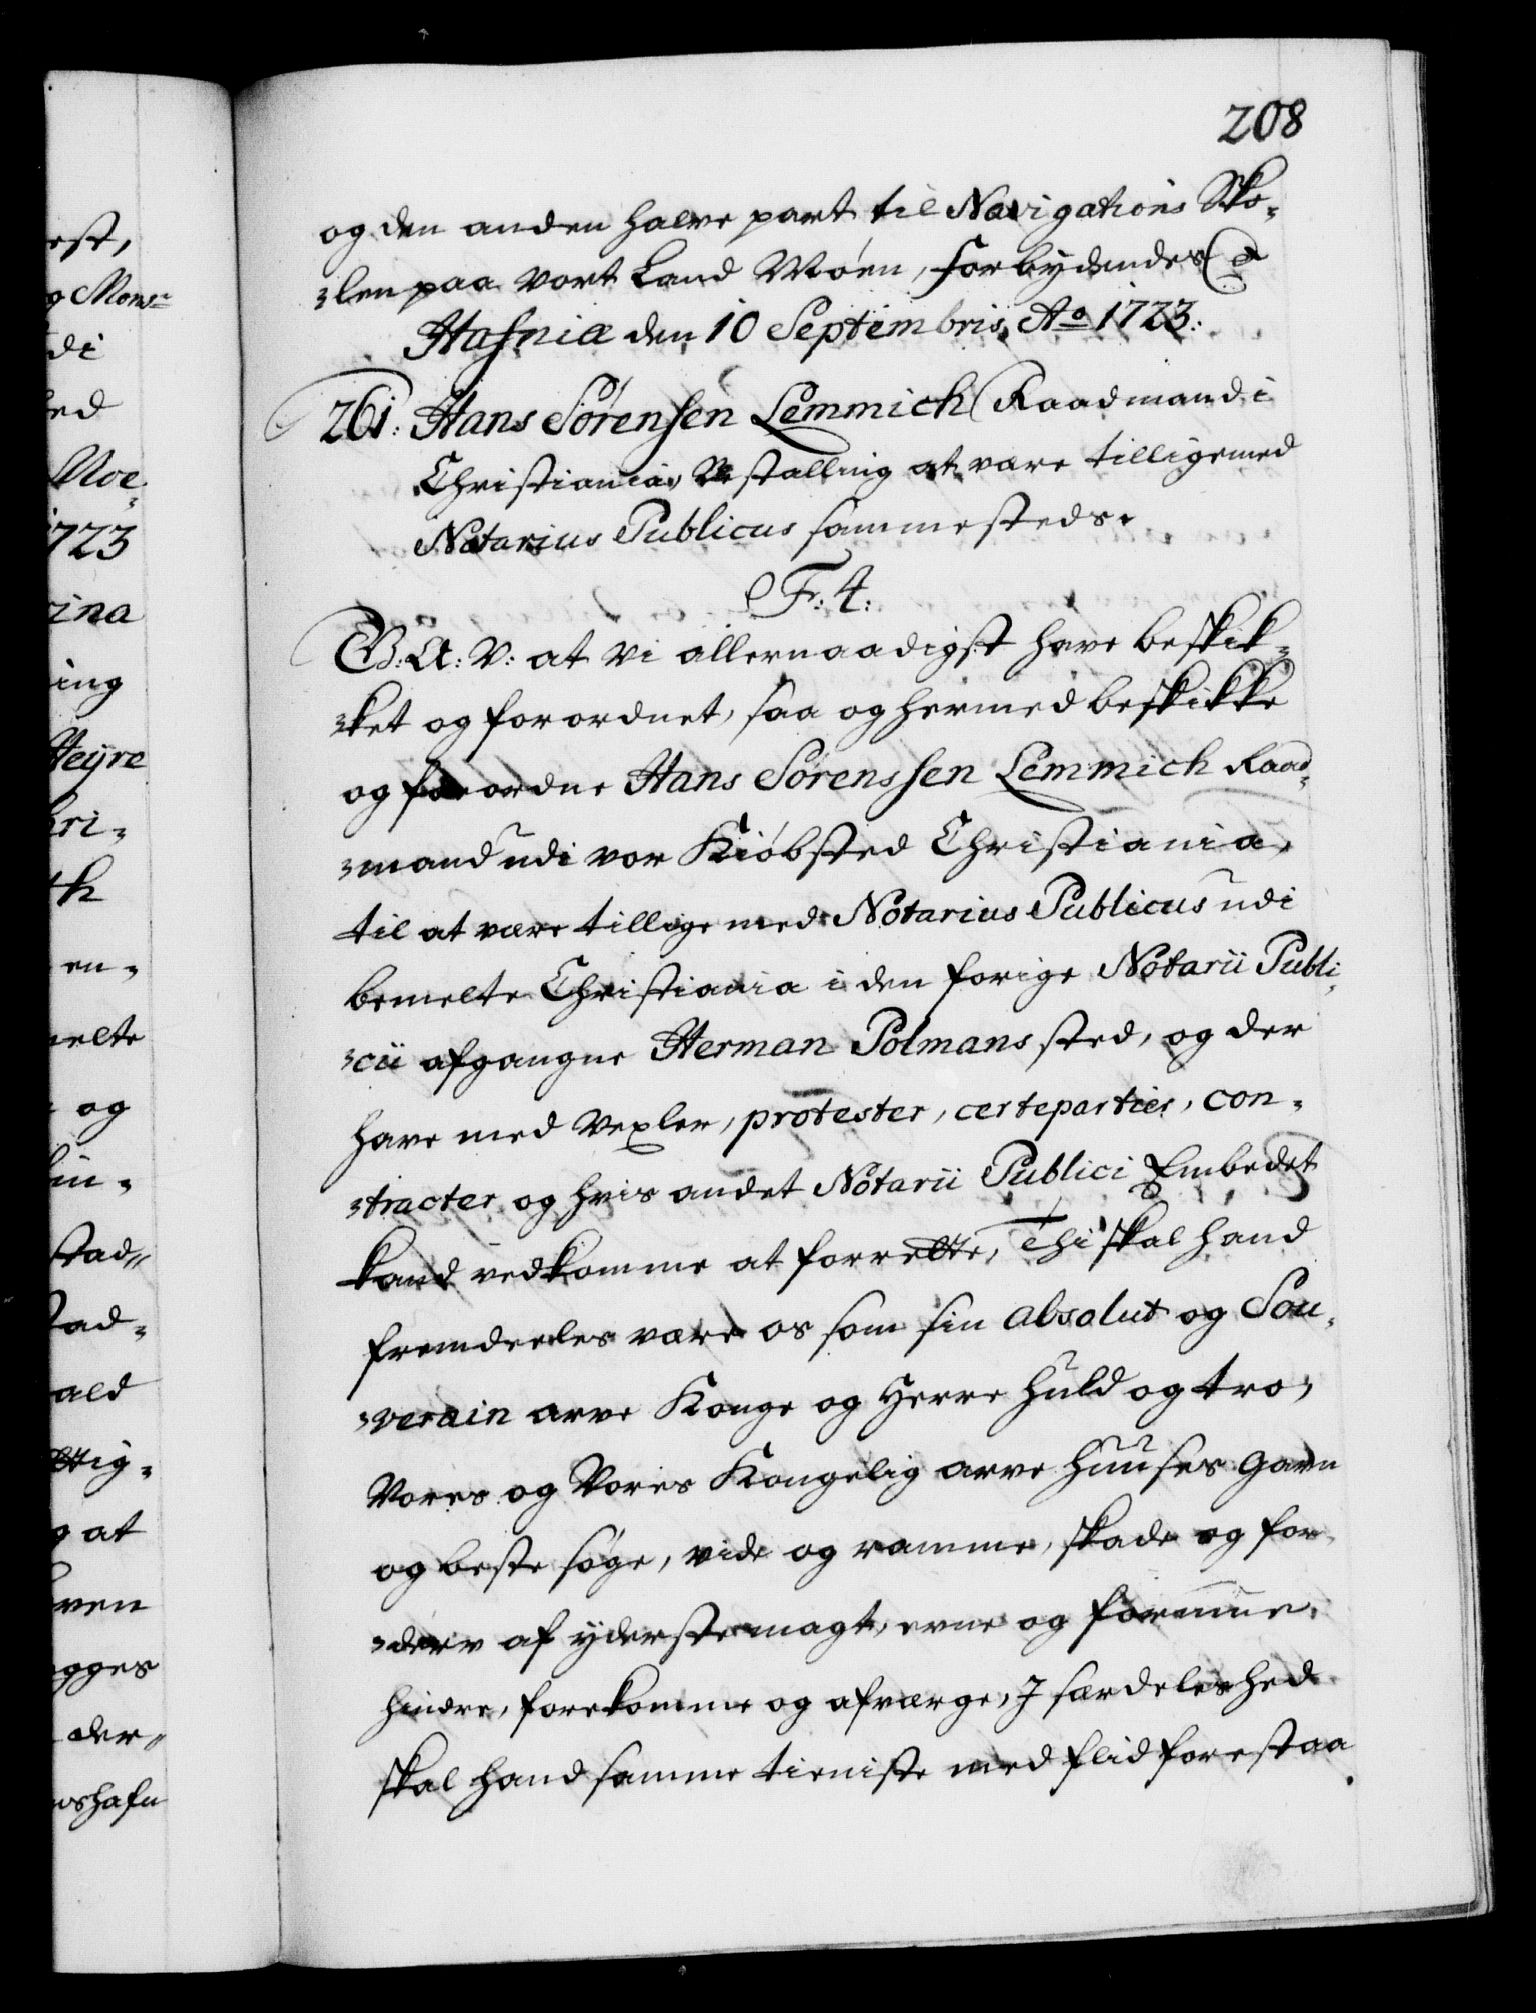 208
og den anden halve part til Navigations Sko-
-len paa vort Land Møen, forbydendes &
Hafniæ den 10 Septembris Ao 1723.
261. Hans Sørensen Lemmich Raadmand i
Christiania, Bestalling at være tilligemed
Notarius Publicus sammesteds.
F: 4:
G: A: V: at vi allernaadigst have beskik-
-ket og forordnet, saa og hermed beskikke
og forordne Hans Sørenssen Lemmich Raad-
-mand udi vor Kiøbsted Christiania,
til at være tillige med Notarius Publicus udi
bemelte Christiania i den forige Notarii Publi-
-cii afgangne Herman Polmans sted, og der
have med Vexler, protester, certepartier, con-
-tracter og hvis andet Notarii Publici Embedet
kand vedkomme at forrette, Thi skal hand
fremdeeles være os som sin absolut og Sou-
-verain arve Konge og Herre huld og tro,
Vores og Vores Kongelig arve Huuses gavn
og beste søge, vide og ramme, skade og for-
-derv af yderste magt, evne og formue,
hindre, forekomme og afværge, I særdeleshed
skal hand samme tieniste med flid forestaa
est,
g Monsr
di
ed
Moe-
1723
rina
ing
Heyre
ri-
th
en-
melte
og
in-
stad-
tad-
ald
ttig-
g at
ven
gges
der-
nshafn